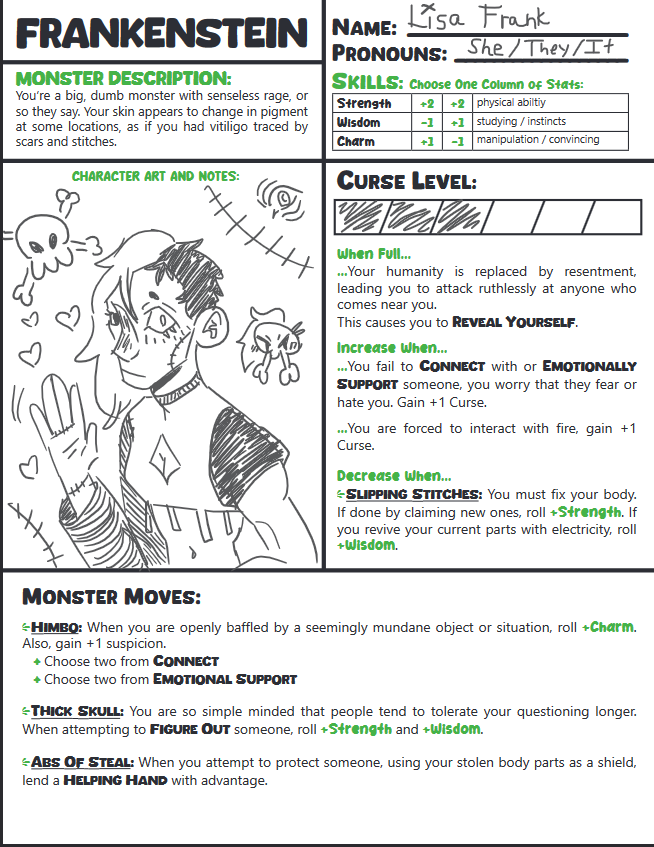 FRANKENSTEIN
MONSTER DESCRIPTION:
You're a big, dumb monster with senseless rage, or
so they say. Your skin appears to change in pigment
at some locations, as if you had vitiligo traced by
scars and stitches.
NAME: Lisa Frank
PRONOUNS: She/They/It
SKILLS: Choose One Column of Stats:
Strength +2 +2 physical abiltiy
Wisdom -1 +1 studying / instincts
Charm +1 -1 manipulation / convincing
CHARACTER ART AND NOTES:
CURSE LEVEL:
When Full...
...Your humanity is replaced by resentment,
leading you to attack ruthlessly at anyone who
comes near you.
This causes you to REVEAL YOURSELF.
Increase When...
...You fail to CONNECT with or EMOTIONALLY
SUPPORT someone, you worry that they fear or
hate you. Gain +1 Curse.
...You are forced to interact with fire, gain +1
Curse.
Decrease When...
SLIPPING STITCHES: You must fix your body.
If done by claiming new ones, roll +Strength. If
you revive your current parts with electricity, roll
+Wisdom.
MONSTER MOVES:
HIMBO: When you are openly baffled by a seemingly mundane object or situation, roll +Charm.
Also, gain +1 suspicion.
+ Choose two from CONNECT
+ Choose two from EMOTIONAL SUPPORT
THICK SKULL: You are so simple minded that people tend to tolerate your questioning longer.
When attempting to FIGURE OUT someone, roll +Strength and +Wisdom.
ABS OF STEAL: When you attempt to protect someone, using your stolen body parts as a shield,
lend a HELPING HAND with advantage.